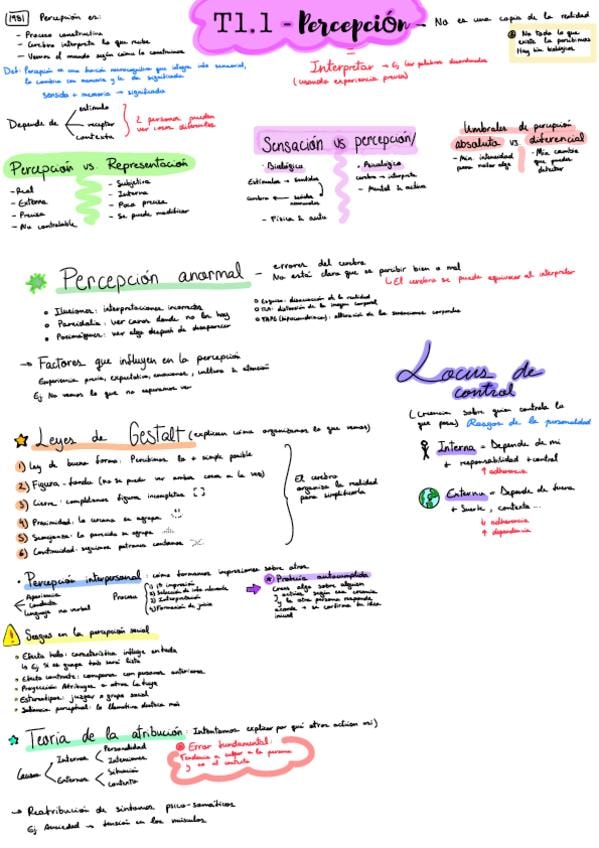 1981 Percepción es:
- Proceso constructivo
- Cerebro interpreta lo que recibe
- Vemos el mundo según cómo lo construimos
T1.1 - Percepción
- No es una copia de la realidad
No todo lo que existe lo percibimos
Hay sin biológicos
Def: Percepción es una función neurocognitiva que integra info sensorial,
la combina con memoria y le da significado
sensorial + memoria → significado
Interpretar → Ej. leer palabras desordenadas
(usando experiencia previa)
Depende de
estímulo
receptor
contexto
2 personas pueden
ver cosas diferentes
Percepción vs. Representación
- Real
- Externa
- Precisa
- No controlable
- Subjetiva
- Interna
- Poca precisa
- Se puede modificar
Sensación vs percepción
· Biológica
Estímulos → sentidos
cerebro ←
- Física &
· Psicológica
cerebro → interpreta
- Mental & activa
Umbrales de percepción
absoluto vs diferencial
- Min. intensidad
para notar algo
- Min cambio
que puedes
detectar
Percepción anormal
- errores del cerebro
No está claro que es percibir bien o mal
↳ El cerebro se puede equivocar al interpretar
• Ilusiones: interpretaciones incorrectas
• Pareidolia: ver caras donde no las hay
• Postimágenes: ver algo después de desaparecer
• Esquizo: desconexión de la realidad
• TCA: distorsión de la imagen corporal
(hipocondríaco): alteración de las sensaciones corporales
→ Factores que influyen en la percepción
Experiencia previa, expectativas, emociones, cultura & atención
Ej No vemos lo que no esperamos ver
Locus de
control
(creencia sobre quien controla lo
que pasa) Rasgos de la personalidad
Interna = Depende de mi
+ responsabilidad + control
↑ adherencia
Externa = Depende de fuera
+ Suerte, contexto...
↓ adherencia
↑ dependencia
Leyes de Gestalt (explican cómo organizamos lo que vemos)
1) Ley de buena forma: Percibimos lo + simple posible
2) Figura - fondo (no se puede ver ambas cosas a la vez)
3) Cierre: completamos figuras incompletas [ ]
4) Proximidad: lo cercano se agrupa
5) Semejanza: lo parecido se agrupa
6) Continuidad: seguimos patrones continuos
El cerebro
organiza la realidad
para simplificarla
• Percepción interpersonal: cómo formamos impresiones sobre otros
Apariencia
Conducta
Lenguaje no verbal
Proceso
1) 1ª impresión
2) Selección de info relevante
3) Interpretación
4) Formación de juicio
Profecía autocumplida
Crees algo sobre alguien
y actúas según esa creencia
y la otra persona responde
acorde → se confirma tu idea
inicial
Sesgos en la percepción social
• Efecto halo: característica influye en todo
↳ Ej. Si es guapa será lista
• Efecto contraste: comparas con personas anteriores
• Proyección: Atribuyes a otros lo tuyo
• Estereotipos: juzgar x grupo social
• Saliencia perceptual: lo llamativo destaca más
Teoría de la atribución: Intentamos explicar por qué otros actúan así)
Causas
Internas
Personalidad
Intenciones
Externas
Situación
Contexto
Error fundamental:
Tendencia a culpar a la persona
y no al contexto
→ Reatribución de síntomas psico-somáticos
Ej Ansiedad → tensión en los músculos